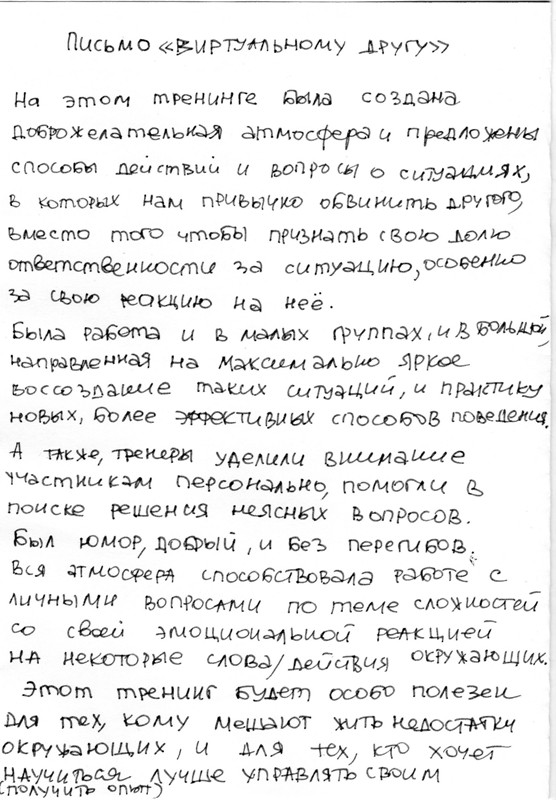 Письмо «Виртуальному другу»
На этом тренинге была создана
доброжелательная атмосфера и предложены
способы действий и вопросы о ситуациях,
в которых нам привычно обвинить другого,
вместо того чтобы признать свою долю
ответственности за ситуацию, особенно
за свою реакцию на неё.
Была работа и в малых группах, и в большой,
направленная на максимально яркое
воссоздание таких ситуаций, и практику
новых, более эффективных способов поведения.
А также, тренеры уделили внимание
участникам персонально, помогли в
поиске решения неясных вопросов.
Был юмор, добрый, и без перегибов.
Вся атмосфера способствовала работе с
личными вопросами по теме сложностей
со своей эмоциональной реакцией
на некоторые слова/действия окружающих.
Этот тренинг будет особо полезен
для тех, кому мешают жить недостатки
окружающих, и для тех, кто хочет
научиться лучше управлять своим
(получить опыт)